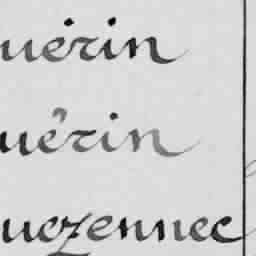 uérin
uérin
uezennec